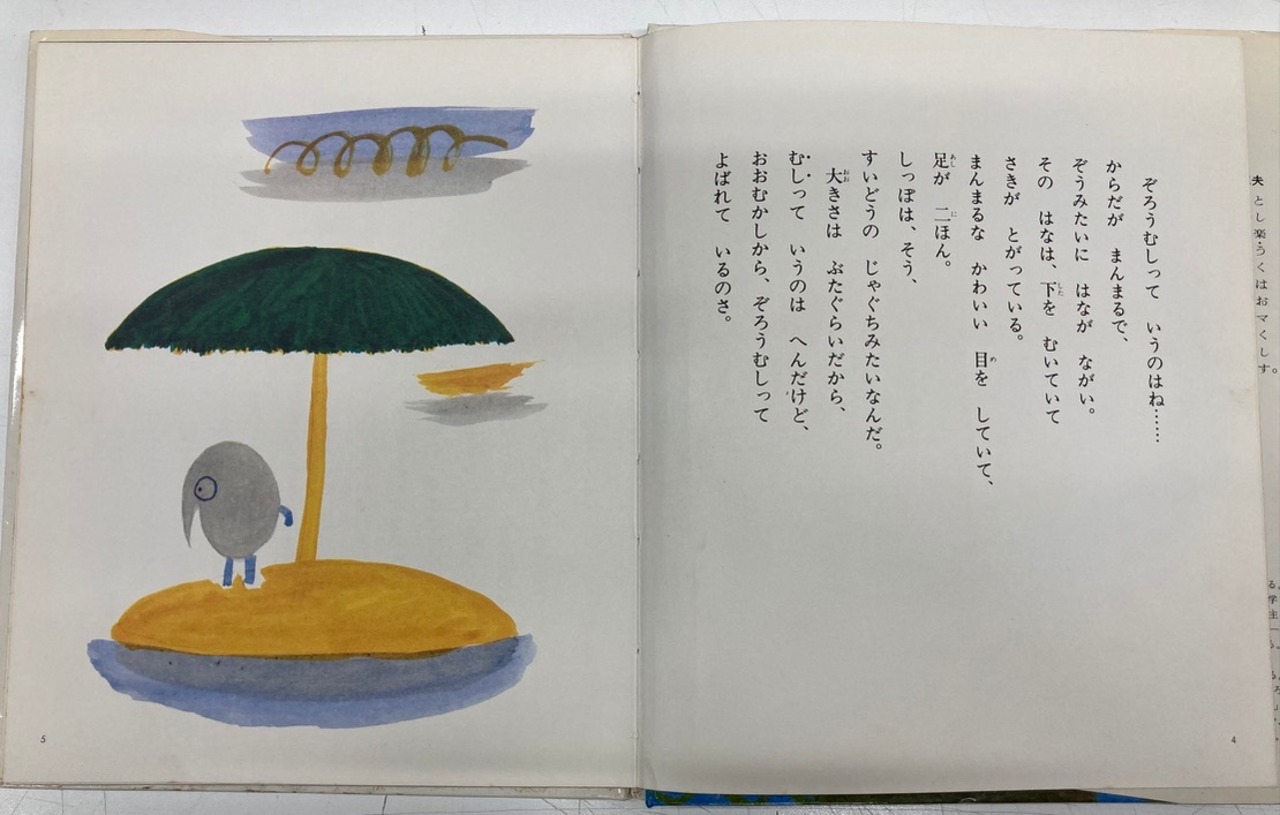 ぞろうむしって　いうのはね……
からだが　まんまるで、
ぞうみたいに　はなが　ながい。
その　はなは、下を　むいていて
さきが　とがっている。
まんまるな　かわいい　目を　していて、
足が　二ほん。
しっぽは、そう、
すいどうの　じゃぐちみたいなんだ。
大きさは　ぶたぐらいだから、
むしって　いうのは　へんだけど、
おおむかしから、ぞろうむしって
よばれて　いるのさ。
4
5